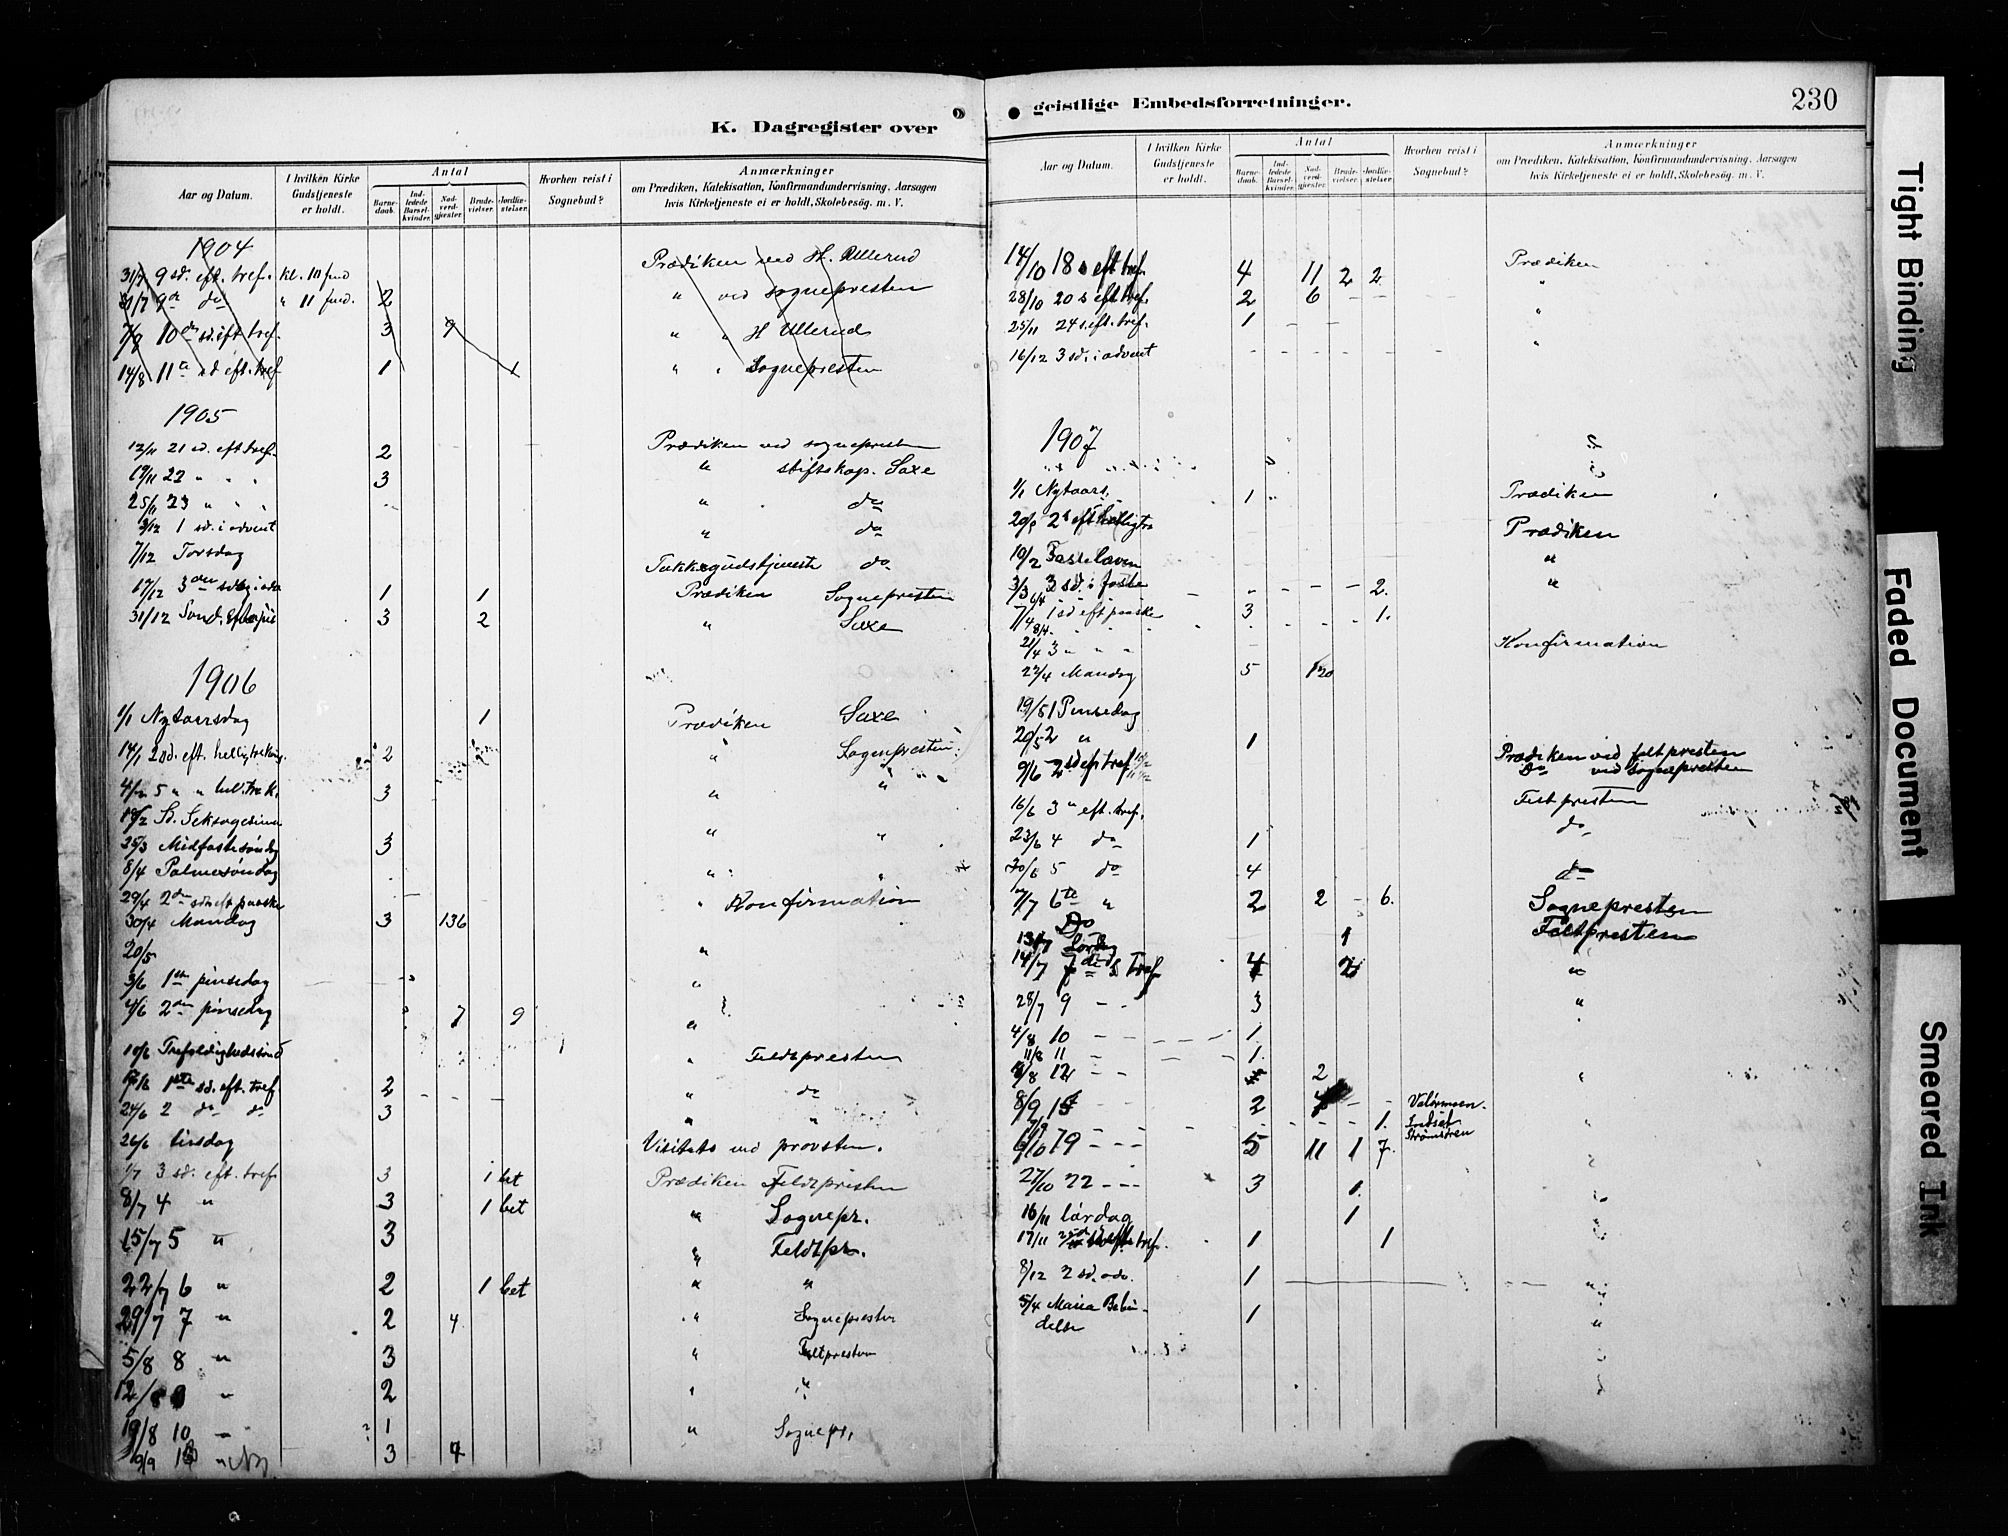 K. Dagregister over
Aar og Datum. I hvilken Kirke Gudstjeneste er holdt. Antal Barnedaab. Indledede Barselkvinder. Nadverdgjester. Brudevielser. Jordfæstelser. Hvorhen reist i Sognebud? Anmærkninger om Prædiken, Katekisation, Konfirmandundervisning, Aarsagen hvis Kirketjeneste ei er holdt, Skolebesøg. m. V.
1904
31/7 9 sd. eft. tref. kl. 10 Prædiken ved H. Ullerud
31/7 9de do " 11 2 " ved sognepresten
7/8 10de sd. eft tref. 3 9 " " H Ullerud
14/8 11te sd eft. tref 1 1 " " Sognepresten
1905
12/11 21 sd. eft tref. 2 Prædiken ved sognepresten
19/11 22 " " " 3 " stiftskap. Saxe
25/11 23 " " " " do
3/12 1 sd. i advent " do
7/12 Torsdag Takkegudstjeneste do
17/12 3die 1 1 Prædiken Sognepresten
31/12 Sønd. efter jul 3 2 " Saxe
1906
1/1 Nytaarsdag 1 Prædiken Saxe
14/1 2 sd. eft. 2 " Sognepresten
4/2 5 " " 3 " "
Sd. Seksagesima " "
25/3 Midfastesøndag 3
8/4 Palmesøndag " "
29/4 2den sd. eft paaske " Konfirmation
30/4 Mandag 3 136
20/5 "
3/6 1ste pinsedag "
4/6 2den pinsedag 7 9 "
10/6 Trefoldighedssønd " Feldtpresten
17/6 1ste sd. eft. tref 2 " do
24/6 2 do do 3 " "
26/6 tirsdag Visitats ved provsten.
1/7 3 sd. eft. tref. 3 1 bet Prædiken Feldtpresten
8/7 4 " 3 1 bet " Sognepr.
15/7 5 " 3 " Feldtpr.
22/7 6 " 2 1 bet " "
29/7 7 " 2 4 " Sognepresten
5/8 8 " 3 " Feltpresten
12/8 " 2 " "
19/8 10 " 1 " Sognepr.
3 4
geistlige Embedsforretninger. 230
Aar og Datum. I hvilken Kirke Gudstjeneste er holdt. Antal Barnedaab. Indledede Barselkvinder. Nadverdgjester. Brudevielser. Jordfæstelser. Hvorhen reist i Sognebud? Anmærkninger om Prædiken, Katekisation, Konfirmandundervisning, Aarsagen hvis Kirketjeneste ei er holdt, Skolebesøg. m. V.
14/10 18 s eft tref. 4 11 2 2 Prædiken
28/10 20 s eft tref. 2 6 - - "
25/11 24 s. eft. tref. 1 - - "
16/12 3 sd. i advent - - - - - "
1907
1/1 Nytaars. 1 Prædiken
Prædiken
10/2 Fastelaven "
3/3 3 sd. i faste - - - - 2. "
7/4 1 sd eft paaske 3 1.
21/4 3 " " " Konfirmation
22/4 Mandag 5 120
19/5 1 Pinsedag
20/5 2 " 1
9/6 2 sd eft tref Prædiken ved feltpresten
Do ved sognepresten
16/6 3 " eft. tref. Feltpresten
23/6 4 do 1 do
30/6 5 do 4 do
7/7 6te " 2 2 - 6. Sognepresten
Do Feltpresten
13/7 Lørdag 1
14/7 7de s Tref 4 2 "
28/7 9 - - 3 "
4/8 10 - - 1.
11/8 11 - 1.
12 - - 2
8/9 15 - - 2 - - Valørmoen.
1.
6/10 19 - - - 5 11 1 7. Strømsøren
27/10 22 - - - 3 1.
16/11 lørdag 1
17/11 tref. 1 1
8/12 2 sd. adv. 1 "
5/4 Maria Bebudelse 1 "
Tight Binding
Faded Document
Smeared Ink